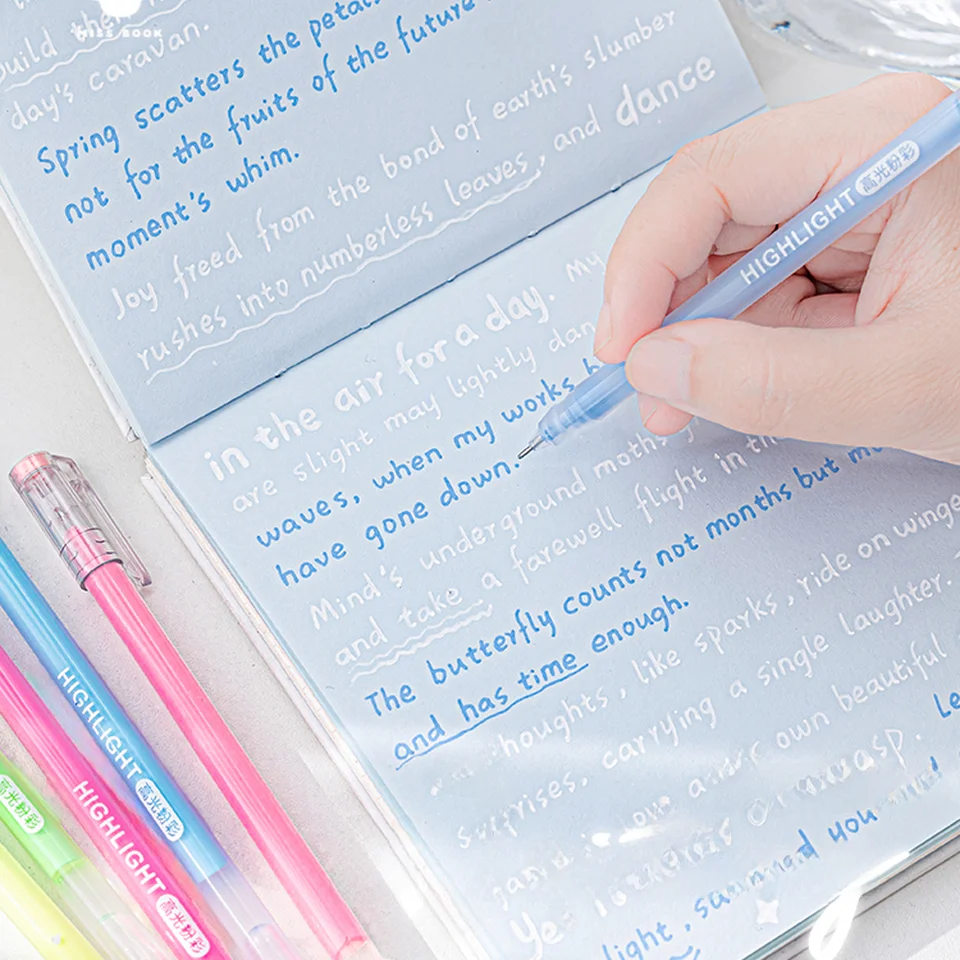 MISS BOOK
build
day's caravan.
Spring scatters the petals
not for the fruits of the future
moment's whim.
Joy freed from the bond of earth's slumber
rushes into numberless leaves, and dance
in the air for a day. my
are slight may lightly dan
waves, when my works
have gone down.
Mind's underground moths
and take a farewell flight in the
The butterfly counts not months but
and has time enough.
houghts, like sparks, ride on winge
surprises, carrying a single laughter.
own beautiful
Le
light, you
HIGHLIGHT 高光粉彩
HIGHLIGHT 高光粉彩
HIGHLIGHT 高光粉彩
高光粉彩